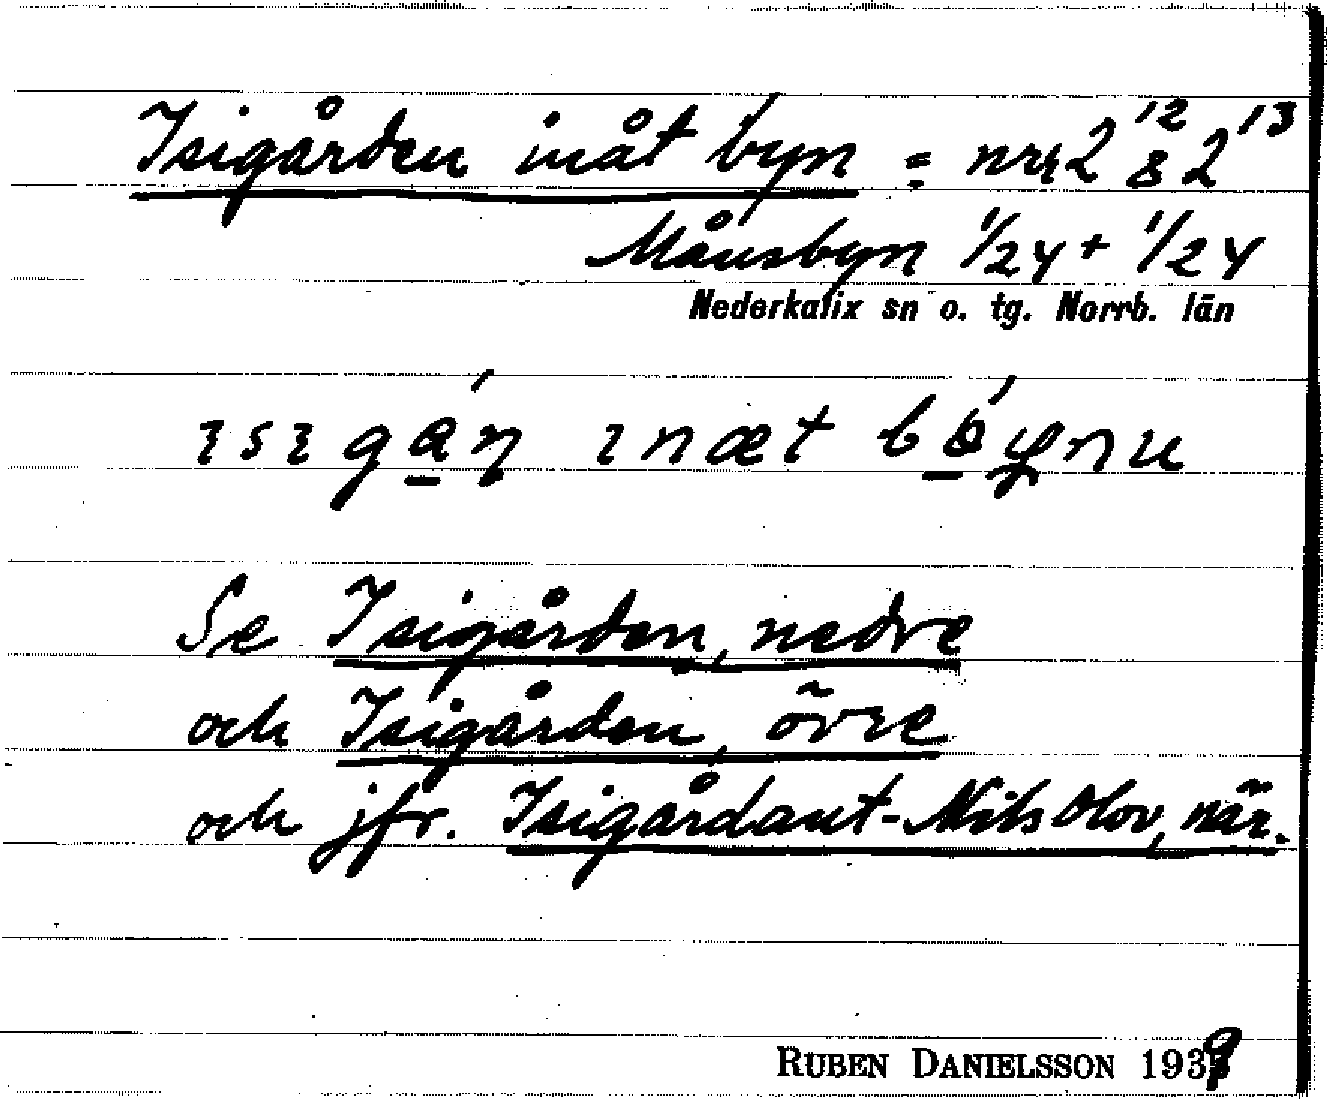 Isigården inåt byn = nr 2¹² & 2¹³
Månsbyn 1/24 + 1/24
Nederkalix sn o. tg. Norrb. län
ısıgáṇ ınæt bóynu
Se Isigården, nedre
och Isigården, övre
och jfr. Isigårdant-Nils Olov, när.
RUBEN DANIELSSON 1939